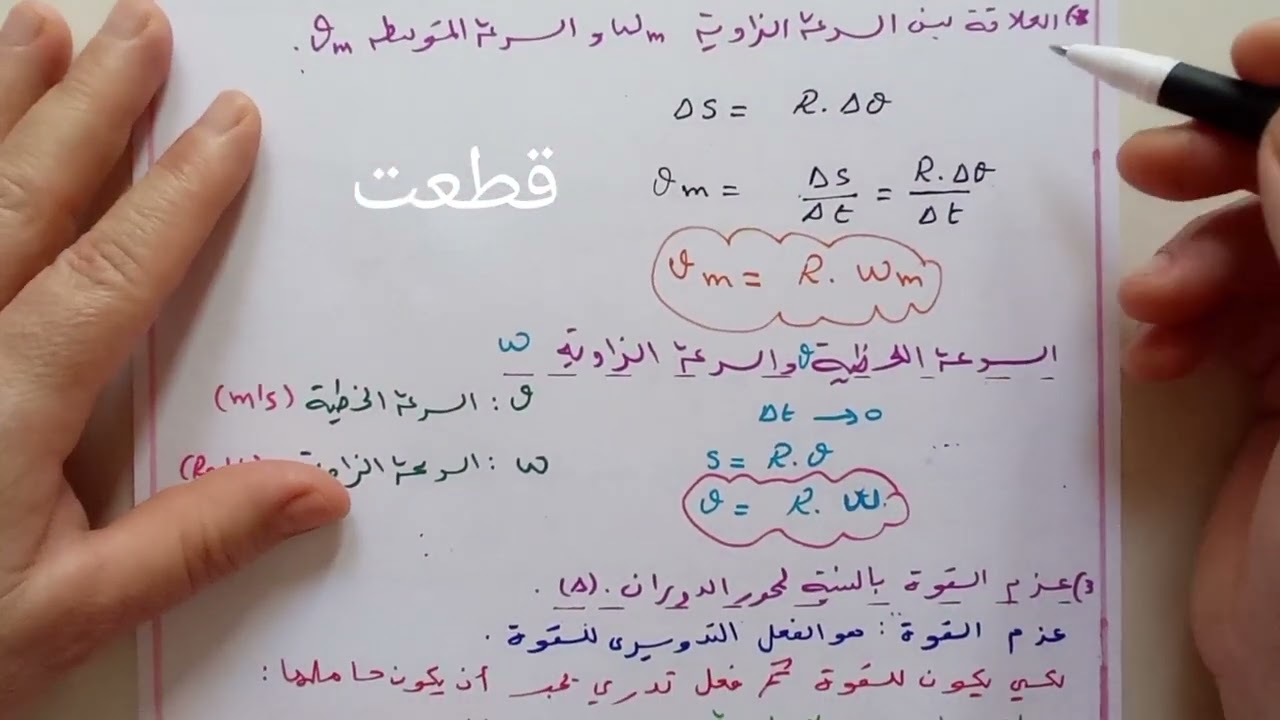 العلاقة بين السرعة الزاوية ωm و السرعة المتوسطه ϑm .
ΔS = R.Δθ
قطعت
ϑm = ΔS/Δt = R.Δθ/Δt
ϑm = R. ωm
السرعة اللحظية ϑ والسرعة الزاوية ω
ϑ : السرعة الخطية (m/s)
Δt → 0
ω : السرعة
S = R.θ
ϑ = R. ω.
3) عزم القوة بالنسبة لمحور الدوران . (Δ) .
عزم القوة : هو الفعل التدويري للقوة .
لكي يكون للقوة فعل تدوري يجب أن يكون حاملها :